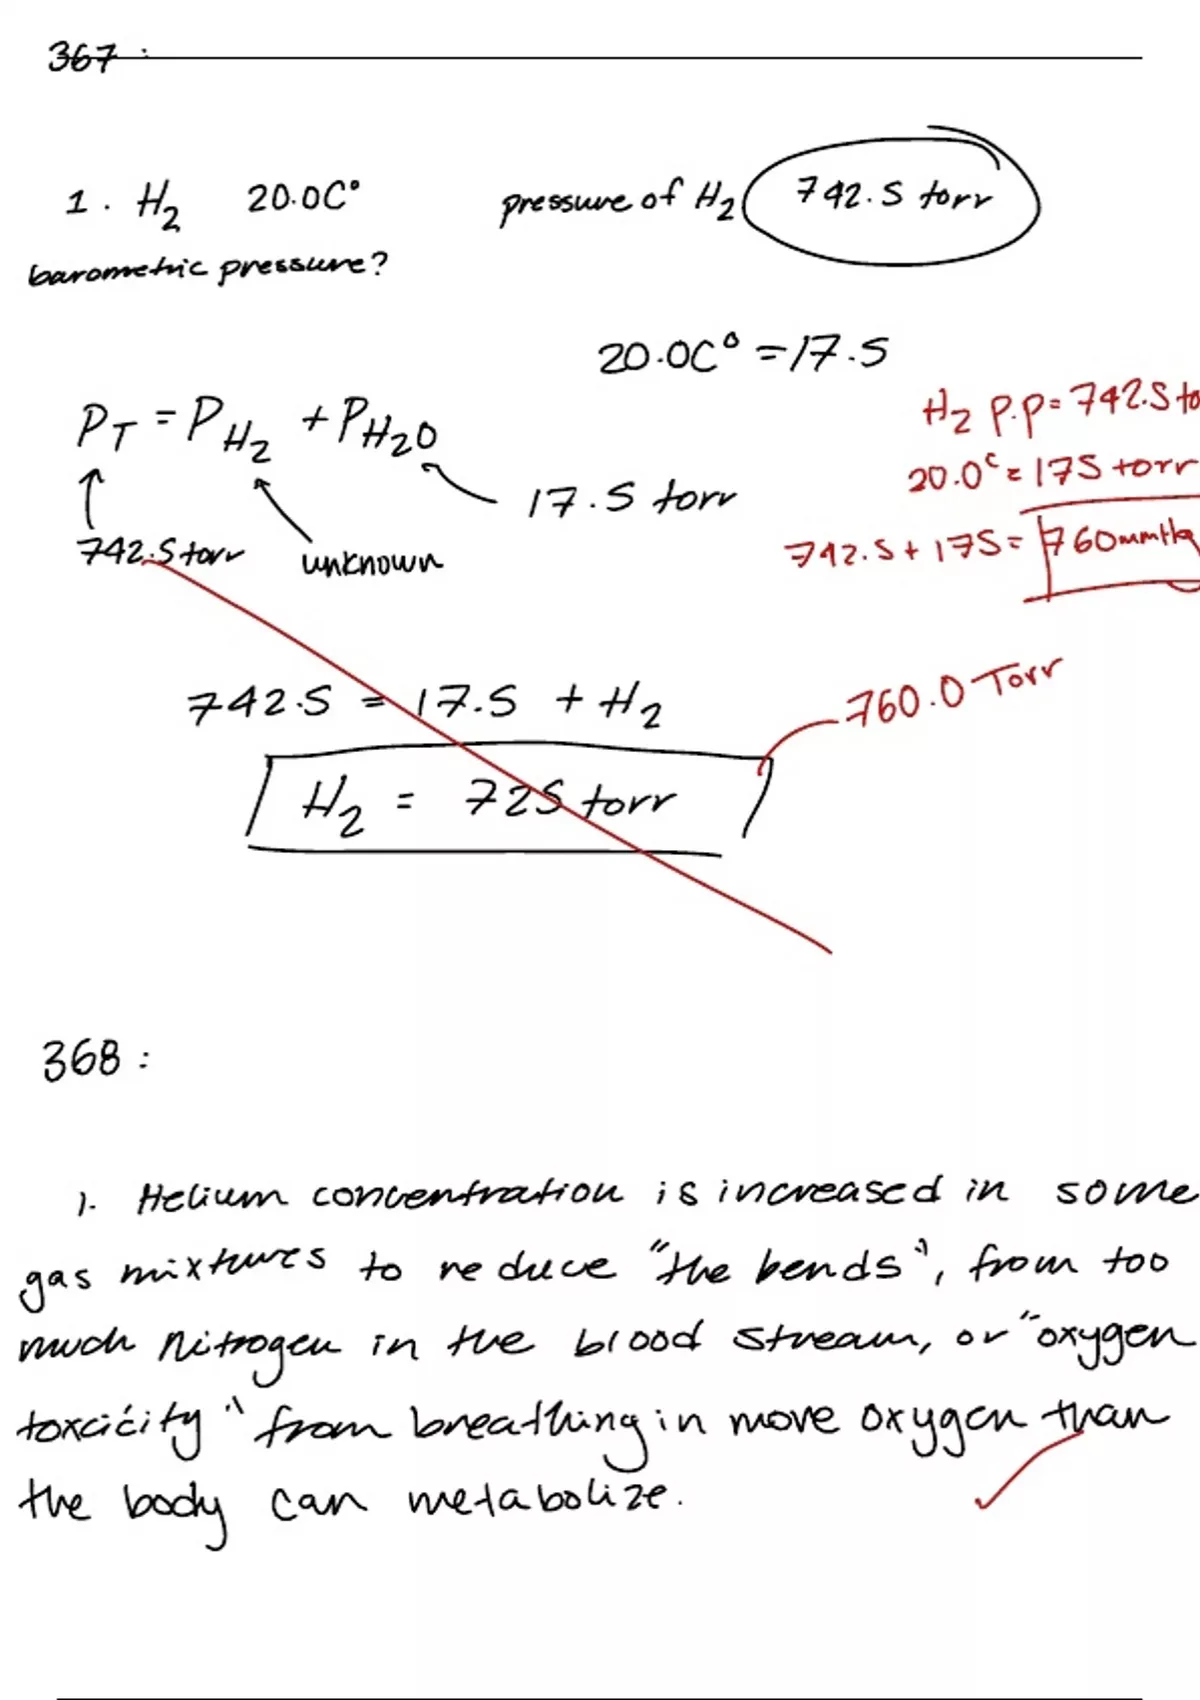 367:
1. H₂ 20.0C° pressure of H₂ 742.5 torr
barometric pressure?
20.0C° = 17.5
P_T = P_H₂ + P_H₂O
17.5 torr
742.5 torr unknown
H₂ P.P = 742.5 to
20.0° = 175 torr
742.5 + 175 = 760mmHg
742.5 = 17.5 + H₂
760.0 Torr
H₂ = 725 torr
368:
1. Helium concentration is increased in some
gas mixtures to reduce "the bends", from too
much Nitrogen in the blood stream, or "oxygen
toxcicity" from breathing in more oxygen than
the body can metabolize.